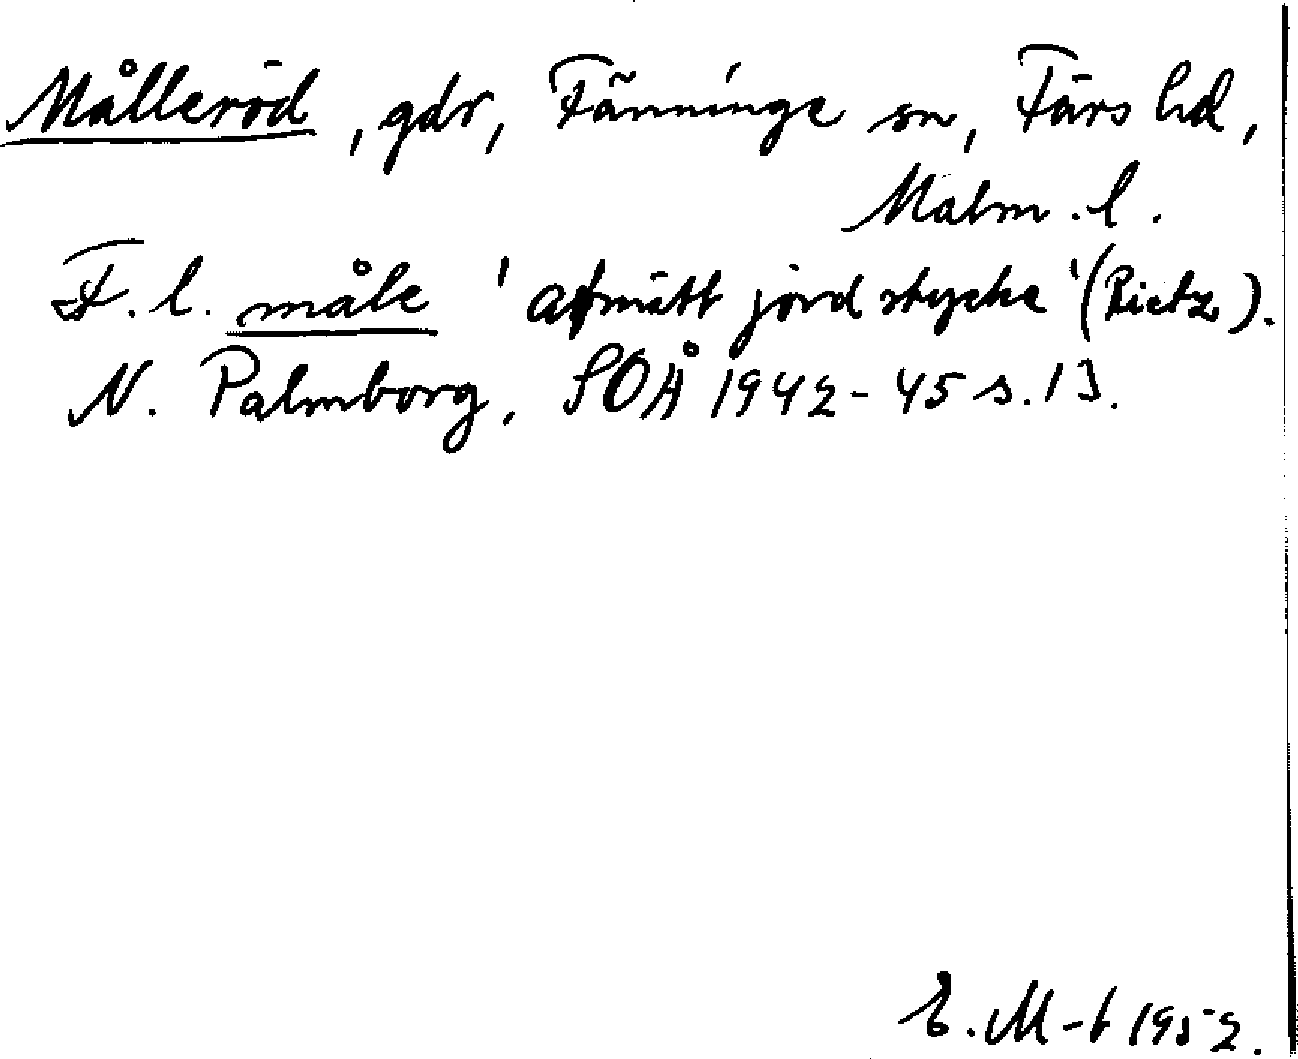 Målleröd, gdr, Fränninge sn, Färs hd,
Malm. l.
F. l. måle 'afmätt jordstycke' (Rietz).
N. Palmborg, SOÅ 1942-45 s. 13.
E. M-t 1952.